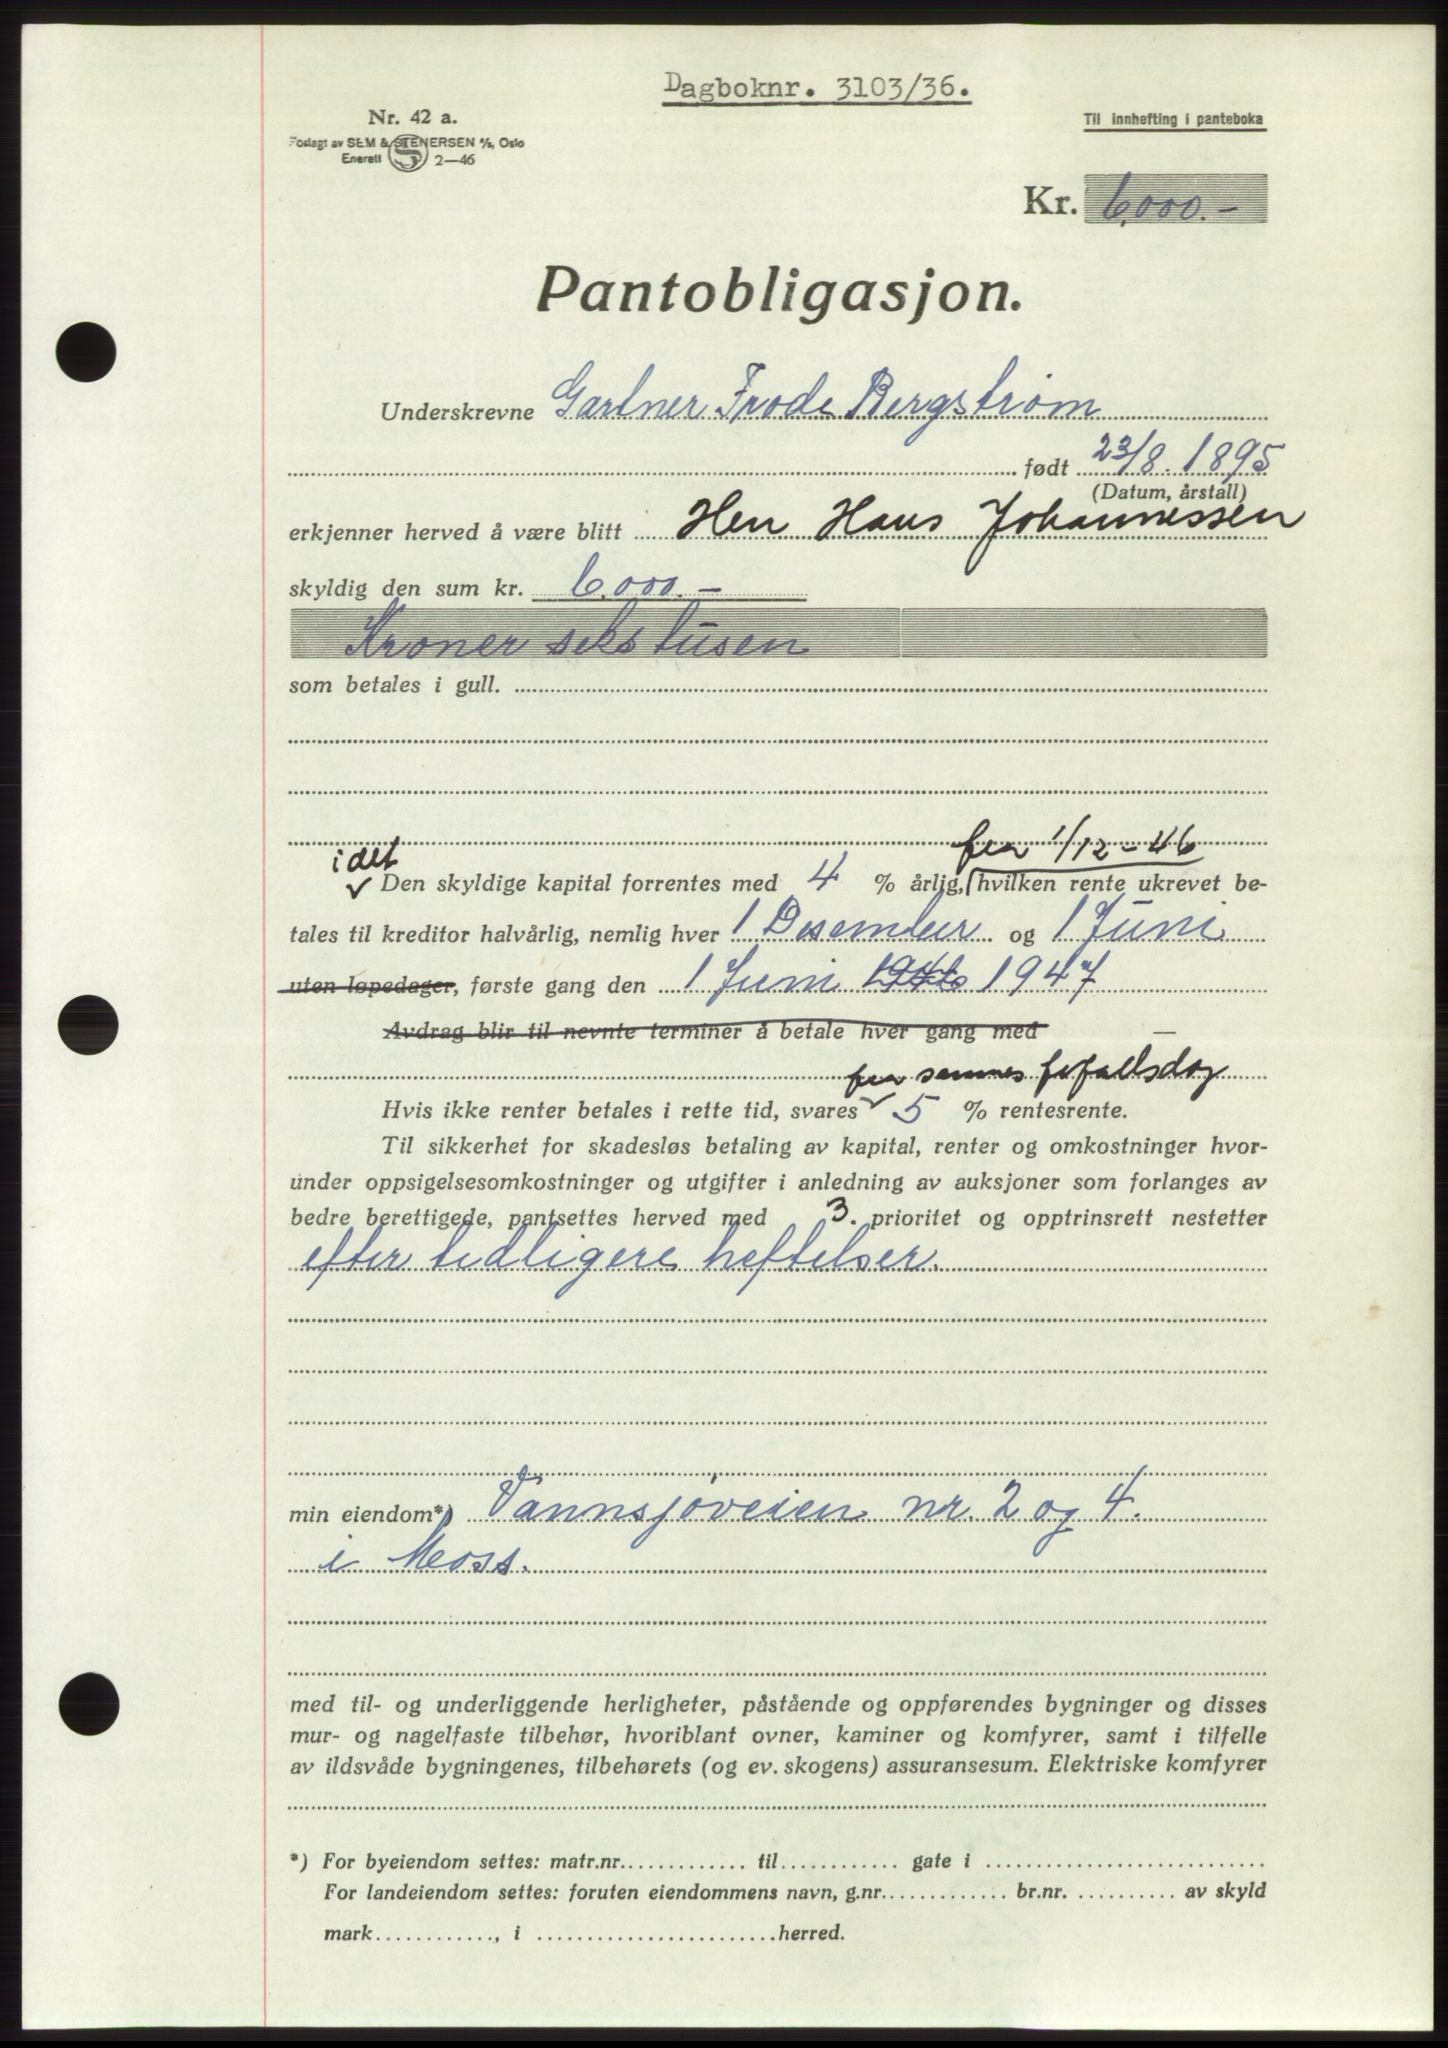 Dagboknr. 3103/36.
Nr. 42 a.
Forlagt av SEM & STENERSEN A/S, Oslo
Enerett 2—46
Til innhefting i panteboka
Kr. 6.000.-
Pantobligasjon.
Underskrevne Gartner Frode Bergstrøm
født 23/8. 1895
(Datum, årstall)
erkjenner herved å være blitt Herr Hans Johannessen
skyldig den sum kr. 6.000.-
Kroner seks tusen
som betales i gull.
i det fra 1/12-46
Den skyldige kapital forrentes med 4 % årlig, hvilken rente ukrevet be-
tales til kreditor halvårlig, nemlig hver 1 Desember og 1 Juni
uten løpedager, første gang den 1 Juni 1946 1947
Avdrag blir til nevnte terminer å betale hver gang med —
fra sammes forfallsdag
Hvis ikke renter betales i rette tid, svares 5 % rentesrente.
Til sikkerhet for skadesløs betaling av kapital, renter og omkostninger hvor-
under oppsigelsesomkostninger og utgifter i anledning av auksjoner som forlanges av
bedre berettigede, pantsettes herved med 3. prioritet og opptrinsrett nestetter
efter tidligere heftelser.
min eiendom*) Vannsjøveien nr. 2 og 4.
i Moss.
med til- og underliggende herligheter, påstående og oppførendes bygninger og disses
mur- og nagelfaste tilbehør, hvoriblant ovner, kaminer og komfyrer, samt i tilfelle
av ildsvåde bygningenes, tilbehørets (og ev. skogens) assuransesum. Elektriske komfyrer
*) For byeiendom settes: matr.nr. til gate i
For landeiendom settes: foruten eiendommens navn, g.nr. br.nr. av skyld
mark , i herred.